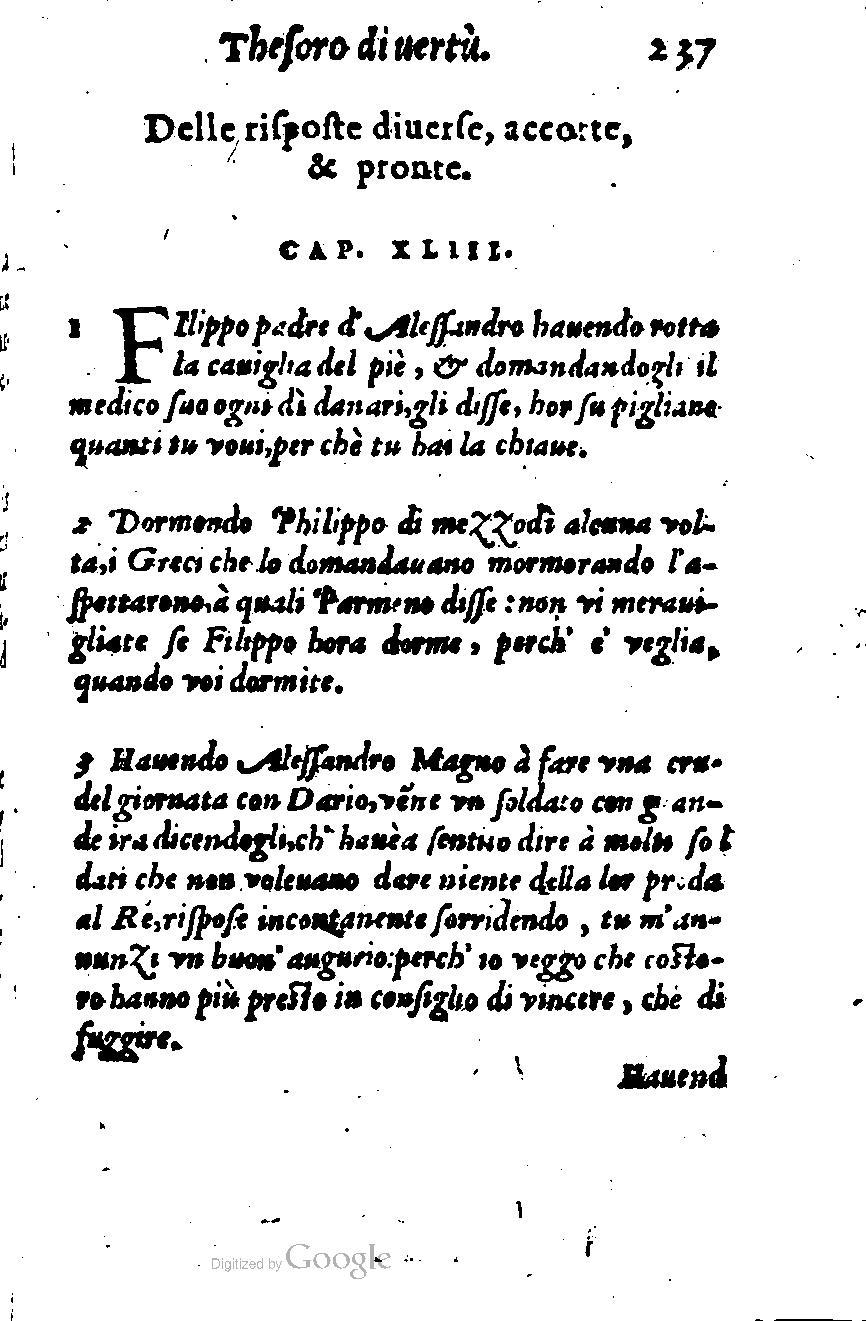 Theſoro di uertù. 237
Delle riſpoſte diuerſe, accorte,
& pronte.
CAP. XLIII.
1 FIlippo padre d' Aleſſandro hauendo rotta
la cauiglia del piè, & domandandogli il
medico ſuo ogni dì danari, gli diſſe, hor ſu pigliane
quanti tu voui, per chè tu hai la chiaue.
2 Dormendo Philippo di mezzodì alcuna vol-
ta, i Greci che lo domandauano mormorando l'a-
ſpettarono, à quali Parmeno diſſe: non vi meraui-
gliate ſe Filippo hora dorme, perch' e' veglia,
quando voi dormite.
3 Hauendo Aleſſandro Magno à fare vna cru-
del giornata con Dario, vẽne vn ſoldato con gran-
de ira dicendogli, ch' hauèa ſentito dire à molti ſol
dati che non voleuano dare niente della lor preda
al Ré, riſpoſe incontanente ſorridendo, tu m'an-
nunzi vn buon' augurio: perch' io veggo che coſto-
ro hanno più preſto in conſiglio di vincere, chè di
fuggire.
Hauend
Digitized by Google